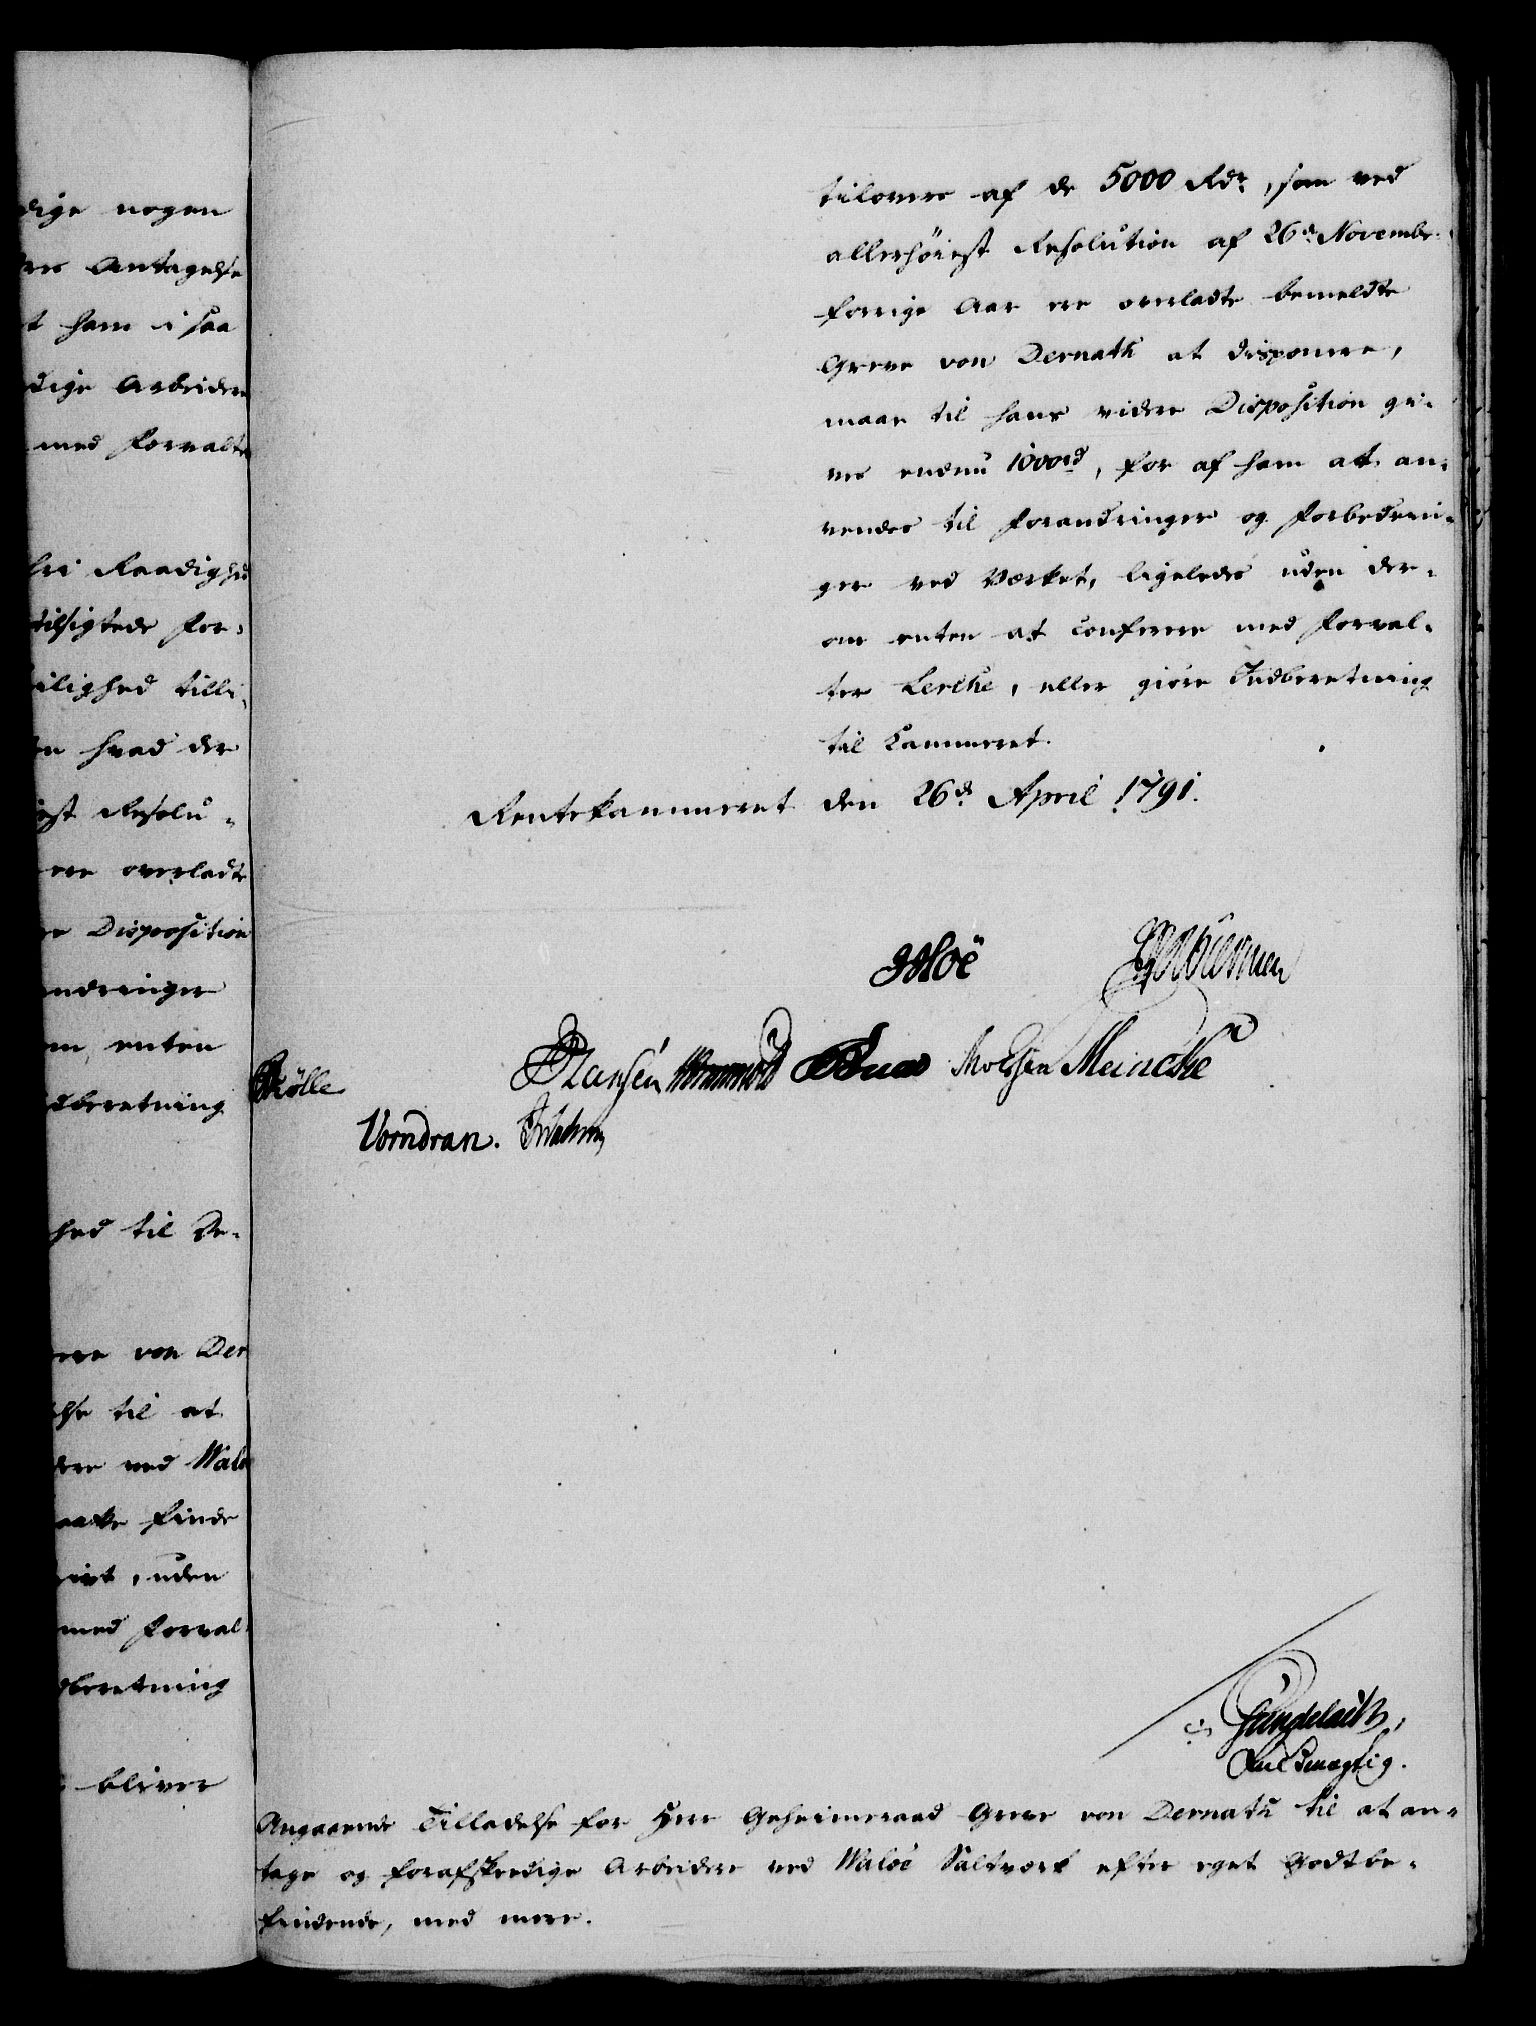 dige nogen
Antagelse
t ham i saa
dige Arbeidere
med Forvalte
fri Raadighed
tilsigtede For-
eilighed tilli-
en hvad der
gst Resolu-
ere overladte
re Disposition
andringer
om enten
dberetning
hed til De-
eve von Der
else til at
dere ved Walø
maatte finde
uden
med Forval-
dberetning
bliver
tilovers af de 5000 Rdr, som ved
allerhöiest Resolution af 26de November
forrige Aar ere overladte bemeldte
Greve von Dernath at disponere,
maae til hans videre Disposition gi-
ves endnu 1000rd, for af ham at an-
vendes til Forandringer og Forbedrin-
ger ved Værket, ligeledes uden der-
om enten at conferere med Forval-
ter Lerche, eller giöre Indberetning
til Kammeret.
Rentekammeret den 26de April 1791.
JHoë
Hansen Wormskiold Moëssen Meincke
Kiölle
Vorndran.
Gundelach,
Fuldmægtig.
Angaaende Tilladelse for Herr Geheimeraad Greve von Dernath til at an-
tage og forafskedige Arbeidere ved Waløe Saltværk efter eget Godtbe-
findende, med mere.